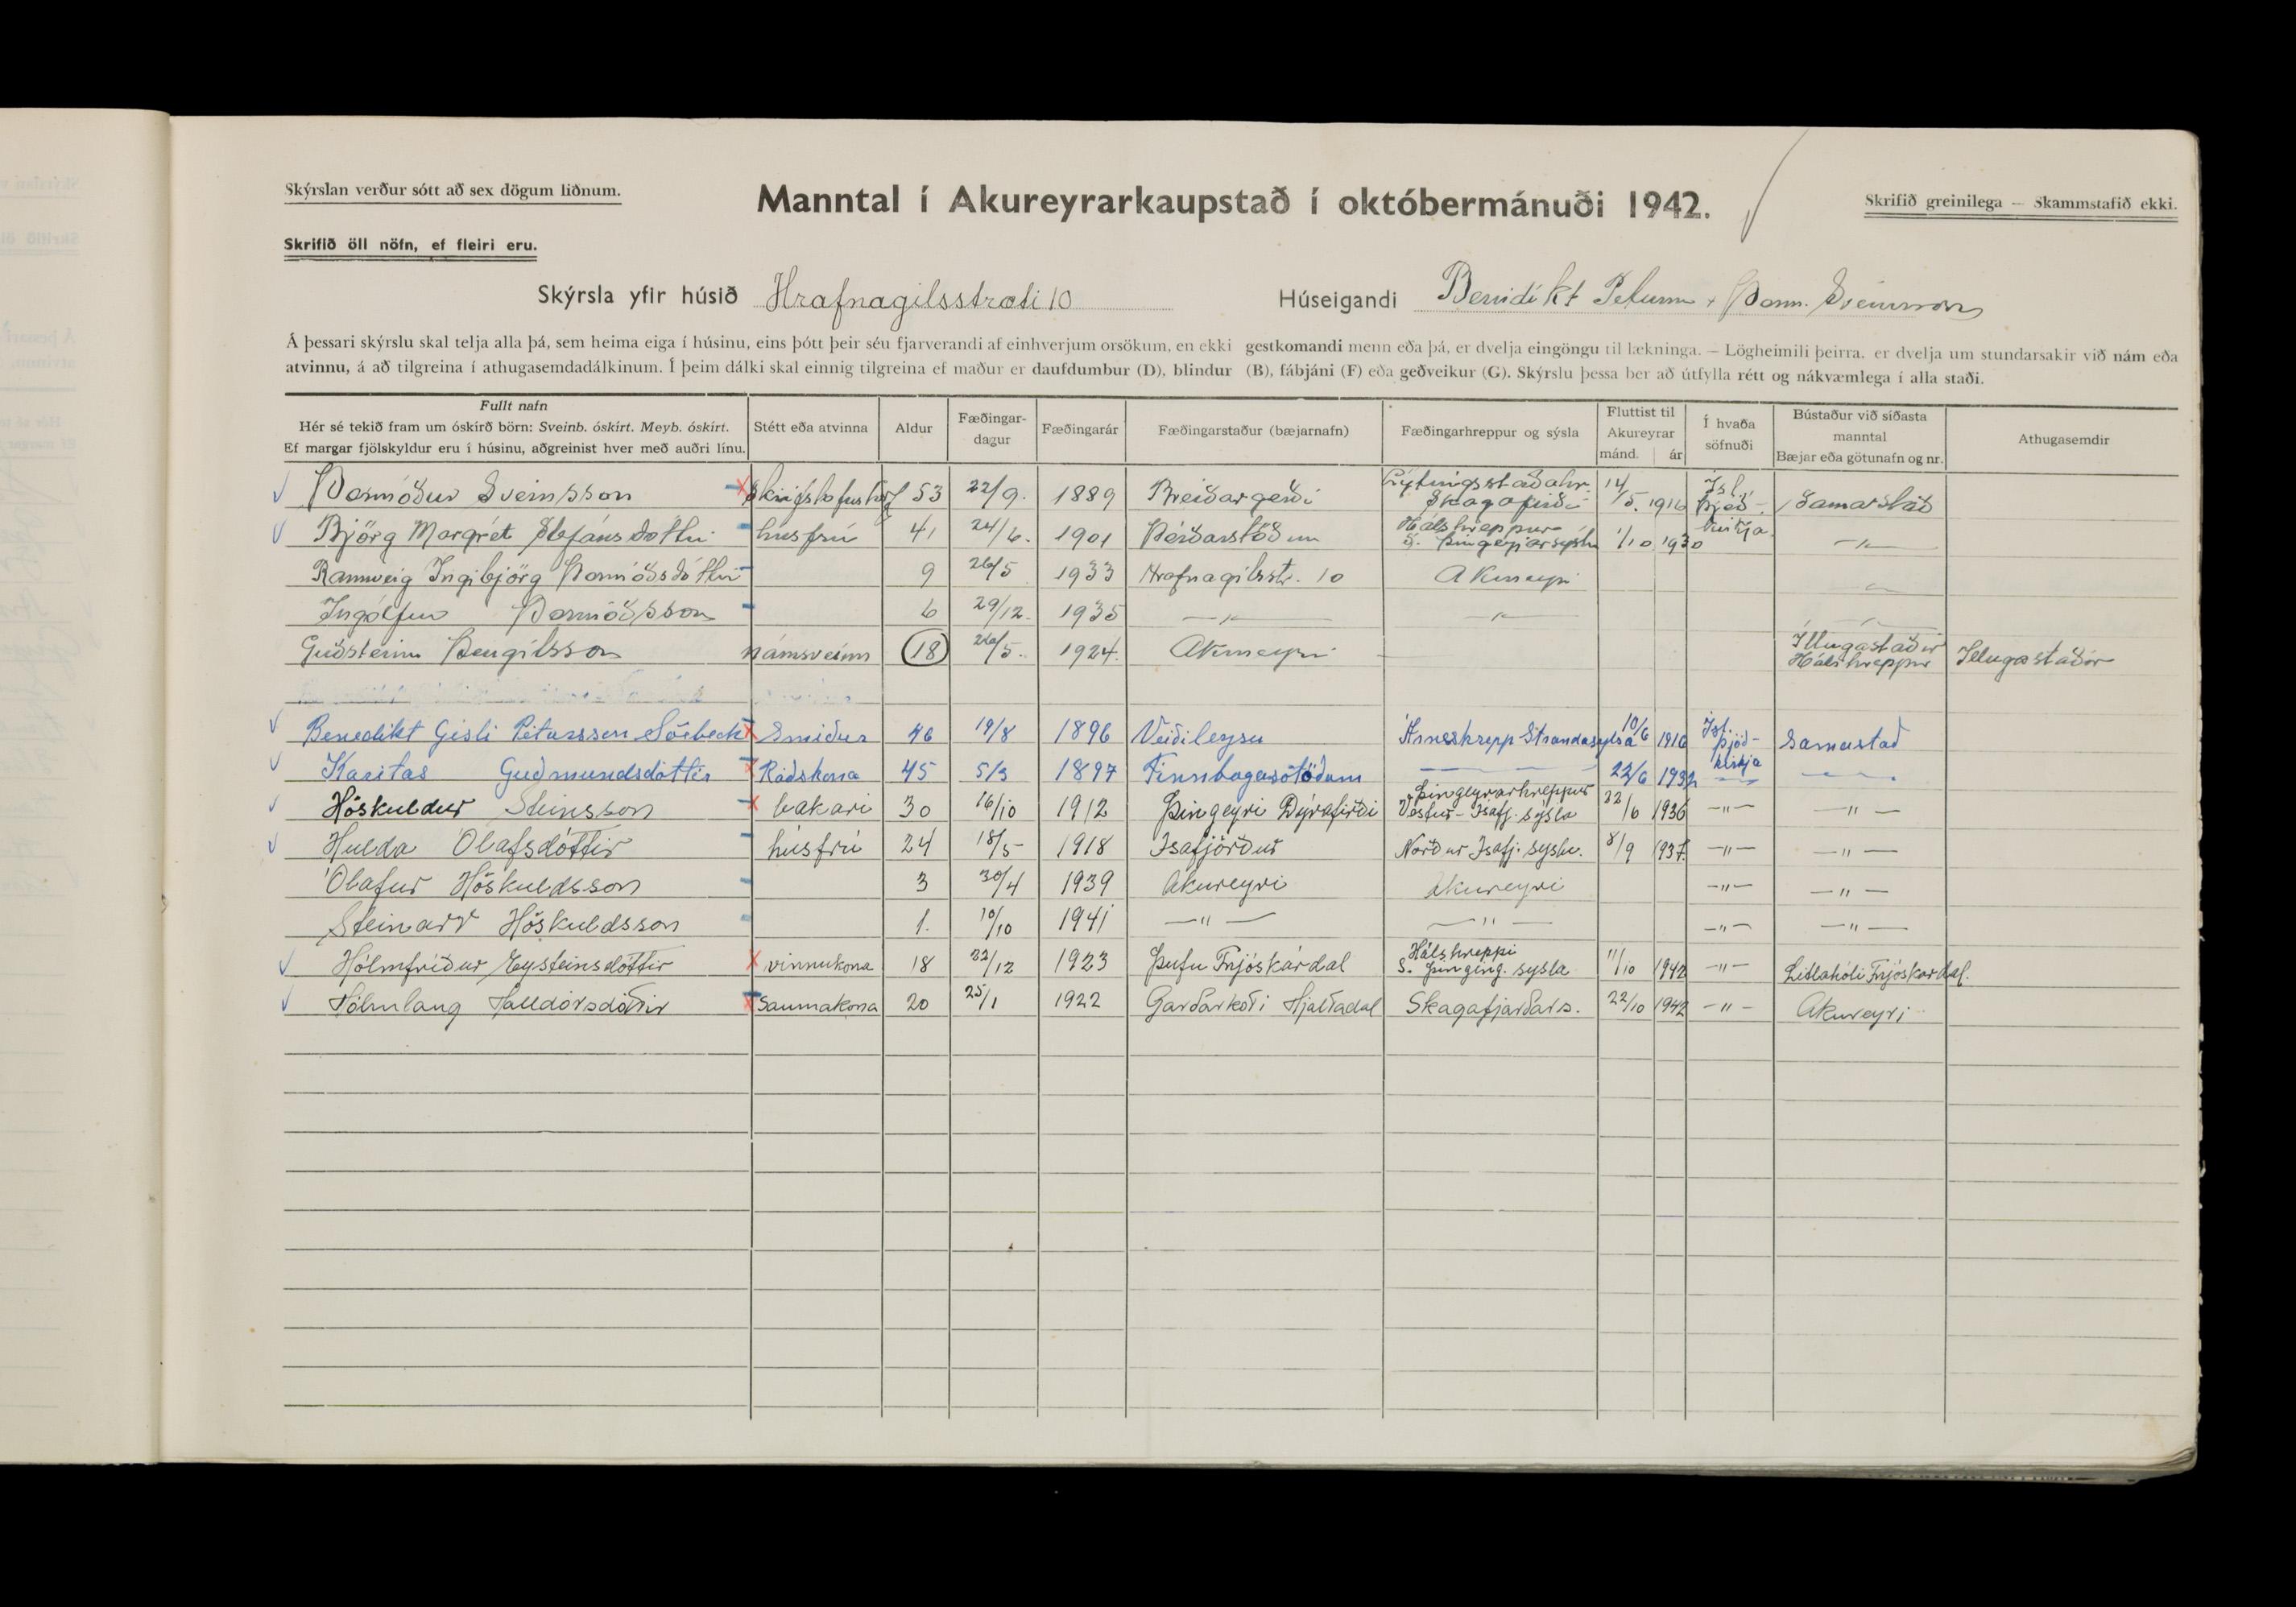 Skýrslan verður sótt að sex dögum liðnum.
Manntal í Akureyrarkaupstað í októbermánuði 1942.
Skrifið greinilega — Skammstafið ekki.
Skrifið öll nöfn, ef fleiri eru.
Skýrsla yfir húsið Hrafnagilsstræti 10 Húseigandi Benidikt Péturss. Þorm. Sveinsson
Á þessari skýrslu skal telja alla þá, sem heima eiga í húsinu, eins þótt þeir séu fjarverandi af einhverjum orsökum, en ekki gestkomandi menn eða þá, er dvelja eingöngu til lækninga. — Lögheimili þeirra, er dvelja um stundarsakir við nám eða
atvinnu, á að tilgreina í athugasemdadálkinum. Í þeim dálki skal einnig tilgreina ef maður er daufdumbur (D), blindur (B), fábjáni (F) eða geðveikur (G). Skýrslu þessa ber að útfylla rétt og nákvæmlega í alla staði.
Fullt nafn
Hér sé tekið fram um óskírð börn: Sveinb. óskírt. Meyb. óskírt.
Ef margar fjölskyldur eru í húsinu, aðgreinist hver með auðri línu.
Stétt eða atvinna
Aldur
Fæðingar-
dagur
Fæðingarár
Fæðingarstaður (bæjarnafn)
Fæðingarhreppur og sýsla
Fluttist til
Akureyrar
mánd. ár
Í hvaða
söfnuði
Bústaður við síðasta
manntal
Bæjar eða götunafn og nr.
Athugasemdir
Þormóður Sveinsson skrifstofustörf 53 22/9. 1889 Breiðargerði Lýtingsstaðahr. Skagafirði 14/5. 1916 Ísl. þjóð- kirkja Samastað
Björg Margrét Stefánsdóttir húsfrú 41 24/6. 1901 Þórðarstöðum Hálshreppur S. Þingeyjarsýslu 1/10 1930 —〃—
Rannveig Ingibjörg Þormóðsdóttir 9 26/5 1933 Hrafnagilsstr. 10 Akureyri —〃—
Ingólfur Þormóðsson 6 29/12. 1935 —〃— —〃— —〃—
Guðsteinn Þengilsson námsveinn 18 26/5. 1924. Akureyri Illugastaðir Hálshreppur Illugastaðir
Benedikt Gísli Pétursson Söebeck Smiður 46 19/8 1896 Veiðileysu Árneshrepp Strandasýsla 10/6 1916 Ísl. þjóð- kirkja samastað
Karitas Guðmundsdóttir Ráðskona 45 5/3 1897 Finnbogastöðum — 22/6 1932 — —
Höskuldur Steinsson bakari 30 16/10 1912 Þingeyri Dýrafirði Þingeyrarhreppur Vestur-Ísafj. sýsla 22/6 1936 —〃— —〃—
Hulda Ólafsdóttir húsfrú 24 18/5 1918 Ísafjörður Norður Ísafj. sýslu. 8/9 1937. —〃— —〃—
Ólafur Höskuldsson 3 30/4 1939 Akureyri Akureyri —〃— —〃—
Steinarr Höskuldsson 1. 10/10 1941 —〃— —〃— —〃— —〃—
Hólmfríður Eysteinsdóttir vinnukona 18 22/12 1923 Þúfu Fnjóskárdal Hálshreppi S. Þingeyg. sýsla 11/10 1942 —〃— Litlahóli Fnjóskardal.
Hólmlaug Halldórsdóttir Saumakona 20 25/1 1922 Garðarkoti Hjaltadal Skagafjarðars. 22/10 1942 —〃— Akureyri